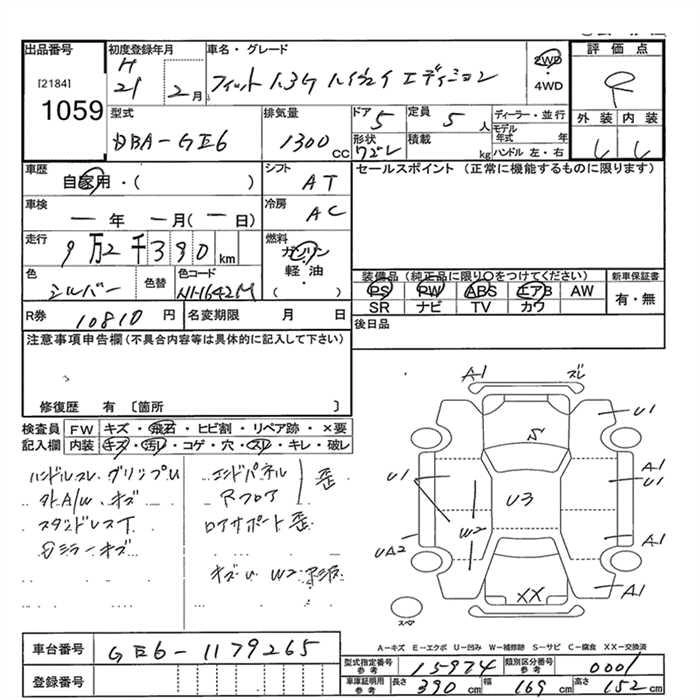 出品番号
[2184]
1059
初度登録年月
H
21 年 2 月
車名・グレード
フィット 1.3G ハイウェイ エディション
2WD
4WD
評価点
外装 内装
型式
DBA-GE6
排気量
1300 CC
ドア
5
定員
5 人
形状
積載
kg
ディーラー・並行
モデル年式 年
ハンドル 左・右
車歴
自家用・( )
シフト
AT
セールスポイント (正常に機能するものに限ります)
車検
— 年 — 月 ( — 日)
冷房
AC
走行
9万2千390 km
燃料
ガソリン
軽・油
( ・ )
色
シルバー
色替
色コード
NH642M
装備品 (純正品に限り○をつけてください)
PS PW ABS エアB AW
SR ナビ TV カワ
新車保証書
有・無
R券 10810 円
名変期限 月 日
後日品
注意事項申告欄 (不具合内容等は具体的に記入して下さい)
修復歴 有 〔箇所 〕
検査員記入欄
FW キズ・飛石・ヒビ割・リペア跡・×要
内装 キズ・汚レ・コゲ・穴・スリ・キレ・破レ
ハンドルスレ グリップU
外A/W キズ
スタッドレスT
Dミラーキズ
エンドパネル
Rフロア
歪
ロアサポート歪
キズU W2
A1
ズレ
U1
A1
U1
S
U1
U3
W2
UA2
A1
XX
A1
スペア
A-キズ E-エクボ U-凹み W-補修跡 S-サビ C-腐食 XX-交換済
車台番号
GE6-1179265
登録番号
型式指定番号 参考
15974
類別区分番号 参考
0001
車庫証明用 参考
長さ 390 cm 幅 169 cm 高さ 152 cm